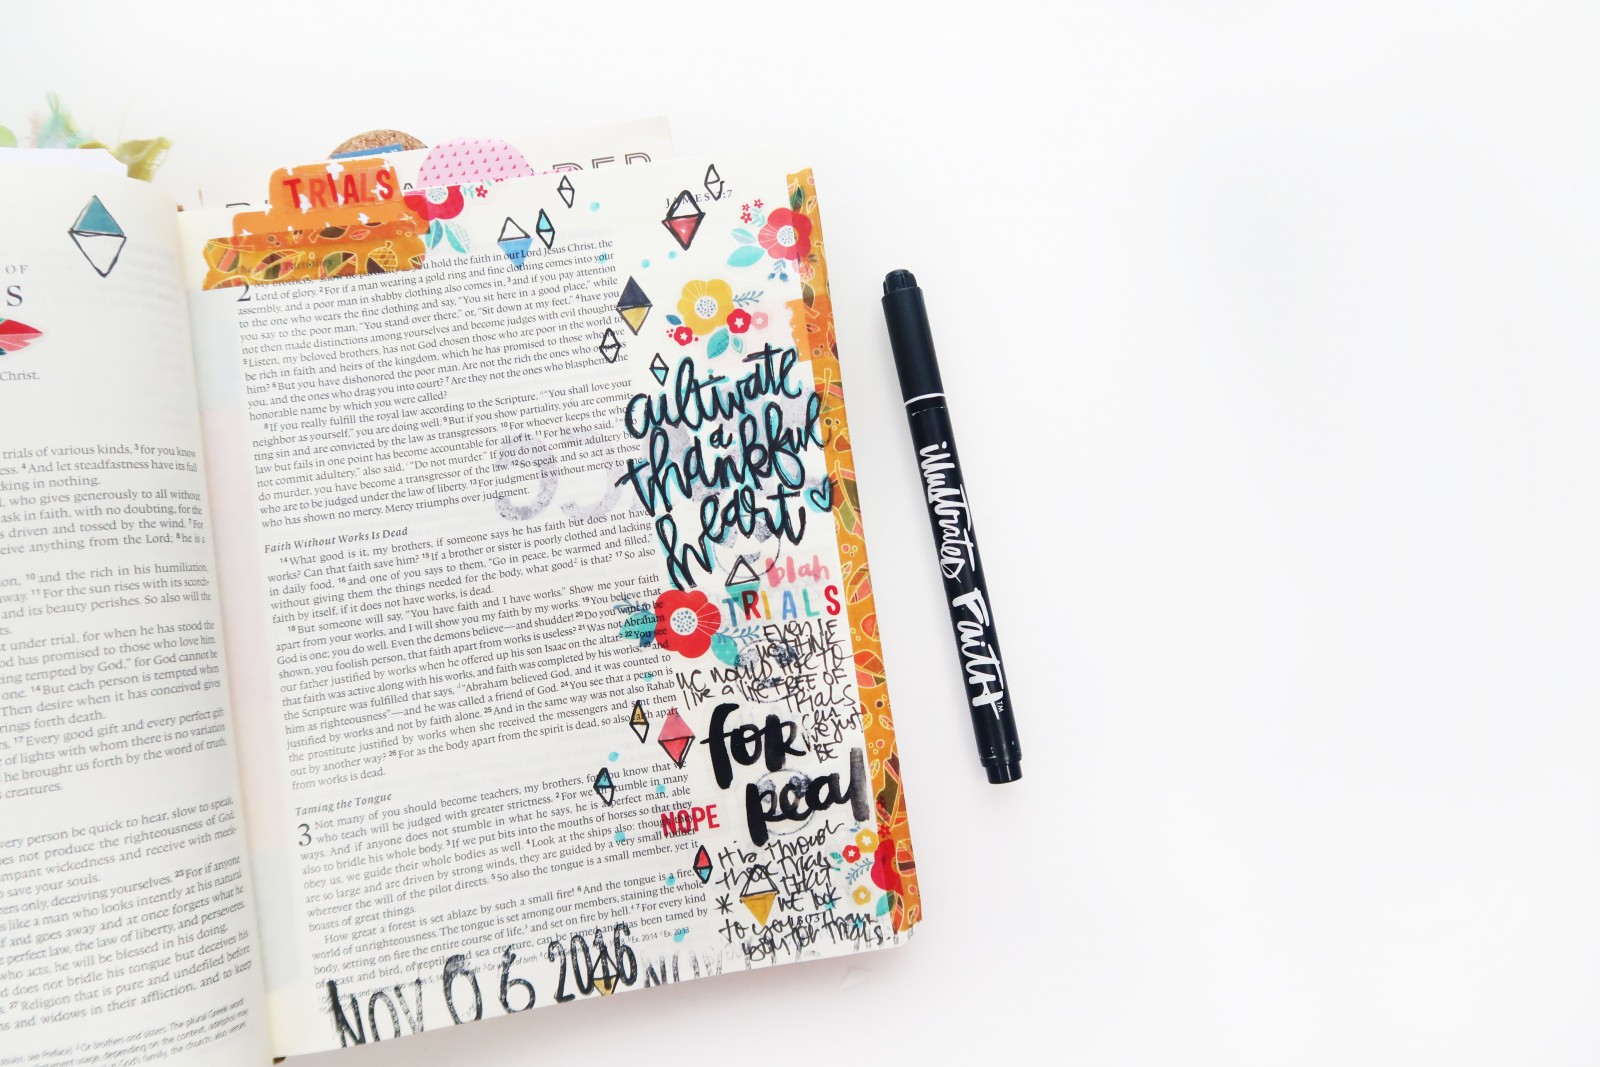 OF
S
Christ,
trials of various kinds, ³for you know
ess. ⁴And let steadfastness have its full
king in nothing.
, who gives generously to all without
ask in faith, with no doubting, for the
s driven and tossed by the wind. ⁷For
eive anything from the Lord; ⁸he is a
on, ¹⁰and the rich in his humiliation,
way. ¹¹For the sun rises with its scorch-
and its beauty perishes. So also will the
ts.
t under trial, for when he has stood the
od has promised to those who love him.
ing tempted by God," for God cannot be
one. ¹⁴But each person is tempted when
Then desire when it has conceived gives
rings forth death.
s. ¹⁷Every good gift and every perfect gift
r of lights with whom there is no variation
he brought us forth by the word of truth,
s creatures.
very person be quick to hear, slow to speak,
es not produce the righteousness of God.
mpant wickedness and receive with meek-
o save your souls.
ers only, deceiving yourselves. ²³For if anyone
s like a man who looks intently at his natural
f and goes away and at once forgets what he
e perfect law, the law of liberty, and perseveres,
who acts, he will be blessed in his doing.
d does not bridle his tongue but deceives his
s. ²⁷Religion that is pure and undefiled before
ns and widows in their affliction, and to keep
TRIALS
JAMES 3:7
2 My brothers, show no partiality as you hold the faith in our Lord Jesus Christ, the
Lord of glory. ²For if a man wearing a gold ring and fine clothing comes into your
assembly, and a poor man in shabby clothing also comes in, ³and if you pay attention
to the one who wears the fine clothing and say, "You sit here in a good place," while
you say to the poor man, "You stand over there," or, "Sit down at my feet," ⁴have you
not then made distinctions among yourselves and become judges with evil thoughts?
⁵Listen, my beloved brothers, has not God chosen those who are poor in the world to
be rich in faith and heirs of the kingdom, which he has promised to those who love
him? ⁶But you have dishonored the poor man. Are not the rich the ones who oppress
you, and the ones who drag you into court? ⁷Are they not the ones who blaspheme the
honorable name by which you were called?
⁸If you really fulfill the royal law according to the Scripture, "You shall love your
neighbor as yourself," you are doing well. ⁹But if you show partiality, you are commit-
ting sin and are convicted by the law as transgressors. ¹⁰For whoever keeps the whole
law but fails in one point has become accountable for all of it. ¹¹For he who said, "Do
not commit adultery," also said, "Do not murder." If you do not commit adultery but
do murder, you have become a transgressor of the law. ¹²So speak and so act as those
who are to be judged under the law of liberty. ¹³For judgment is without mercy to one
who has shown no mercy. Mercy triumphs over judgment.
Faith Without Works Is Dead
¹⁴What good is it, my brothers, if someone says he has faith but does not have
works? Can that faith save him? ¹⁵If a brother or sister is poorly clothed and lacking
in daily food, ¹⁶and one of you says to them, "Go in peace, be warmed and filled,"
without giving them the things needed for the body, what good is that? ¹⁷So also
faith by itself, if it does not have works, is dead.
¹⁸But someone will say, "You have faith and I have works." Show me your faith
apart from your works, and I will show you my faith by my works. ¹⁹You believe that
God is one; you do well. Even the demons believe—and shudder! ²⁰Do you want to be
shown, you foolish person, that faith apart from works is useless? ²¹Was not Abraham
our father justified by works when he offered up his son Isaac on the altar? ²²You see
that faith was active along with his works, and faith was completed by his works; ²³and
the Scripture was fulfilled that says, "Abraham believed God, and it was counted to
him as righteousness"—and he was called a friend of God. ²⁴You see that a person is
justified by works and not by faith alone. ²⁵And in the same way was not also Rahab
the prostitute justified by works when she received the messengers and sent them
out by another way? ²⁶For as the body apart from the spirit is dead, so also faith apart
from works is dead.
Taming the Tongue
3 Not many of you should become teachers, my brothers, for you know that we
who teach will be judged with greater strictness. ²For we all stumble in many
ways. And if anyone does not stumble in what he says, he is a perfect man, able
also to bridle his whole body. ³If we put bits into the mouths of horses so that they
obey us, we guide their whole bodies as well. ⁴Look at the ships also: though they
are so large and are driven by strong winds, they are guided by a very small rudder
wherever the will of the pilot directs. ⁵So also the tongue is a small member, yet it
boasts of great things.
How great a forest is set ablaze by such a small fire! ⁶And the tongue is a fire, a
world of unrighteousness. The tongue is set among our members, staining the whole
body, setting on fire the entire course of life, and set on fire by hell. ⁷For every kind
of beast and bird, of reptile and sea creature, can be tamed and has been tamed by
NOV 06 2016
cultivate
a
thankful
heart
blah
TRIALS
EVEN IF
WE THINK
WE WOULD LIKE TO
live a life FREE OF
TRIALS
can
we just
BE
FOR
Real
NOPE
it is through
those trials
* that
we look
to you
illustrated Faith™